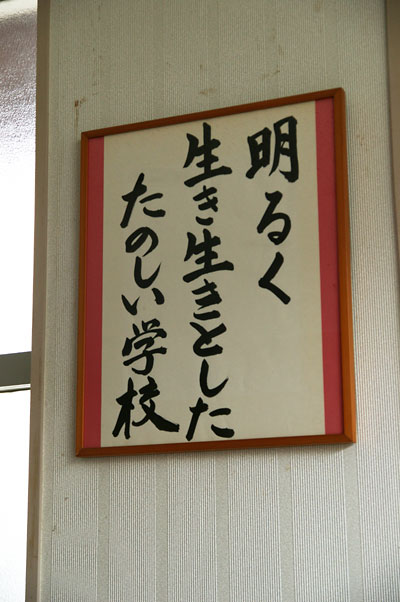 明るく
生き生きとした
たのしい学校